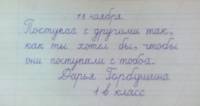 11 ноября.
Поступай с другими так,
как ты хотел бы, чтобы
они поступали с тобой.
Дарья Горбушина
1 в класс